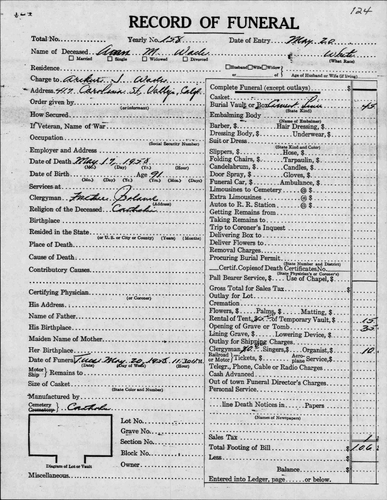 124
RECORD OF FUNERAL
Total No. Yearly No. 158 Date of Entry May 20
Name of Deceased M. Wade White
Married Single Widowed Divorced (What Race)
Residence Husband Wife Widow or
Age of Husband or Wife (if living)
Charge to S. Wade
Address 417 Carolina St. Vallejo, Calif.
Order given by
(or informant)
How Secured
If Veteran, Name of War
Occupation
(Social Security Number)
Employer and Address
Date of Death May 17, 1958
(Mo.) (Day) (Yr.)
Date of Birth Age 91
(Mo.) (Day) (Yr.) (Yrs.) (Mo.) (Days)
Services at
Clergyman Father
(Address)
Religion of the Deceased Catholic
Birthplace
Resided in the State
(or U. S. or City or County) (Years) (Months)
Place of Death
Cause of Death
Contributory Causes
Certifying Physician
(or Coroner)
His Address
Name of Father
His Birthplace
Maiden Name of Mother
Her Birthplace
Date of Funeral Tues May 20, 1958 11:20 AM
(Date) (Day of Week) (Hour)
Motor Ship Remains to
Size of Casket
(State Color and Number)
Manufactured by
Cemetery Crematory Catholic
Lot No.
Grave No.
Section No.
Block No.
Owner
Diagram of Lot or Vault
Miscellaneous
Complete Funeral (except outlays)
Casket
Burial Vault or Box Cement 45
(State Kind)
Embalming Body
(Name of Embalmer)
Barber, Hair Dressing,
Dressing Body, Underwear,
Suit or Dress
(State Kind and Color)
Slippers, Hose,
Folding Chairs, Tarpaulin,
Candelabrum, Candles,
Door Spray, Gloves,
Funeral Car, Ambulance,
Limousines to Cemetery @ $
Extra Limousines @ $
Autos to R. R. Station @ $
Getting Remains from
Taking Remains to
Trip to Coroner's Inquest
Delivering Box to
Deliver Flowers to
Removal Charges
Procuring Burial Permit
(State Number and District)
Certif. Copies of Death Certificates No.
(State Physician's or Coroner's)
Pall Bearer Service, Use of Chapel,
Gross Total for Sales Tax
Outlay for Lot
Cremation
Flowers, Palms, Matting,
Rental of Tent, of Temporary Vault, 15
Opening of Grave or Tomb 35
Lining Grave, Lowering Device,
Outlay for Shipping Charges
Clergyman, Singers, Organist, 10
Railroad or Motor Tickets, Aero- Service,
Telegr., Phone, Cable or Radio Charges
Cash Advanced
Out of town Funeral Director's Charges
Personal Service
line Death Notices in Papers
(Names of Newspapers)
Sales Tax 1
Total Footing of Bill 106
Less
Balance
Entered into Ledger, page or below.